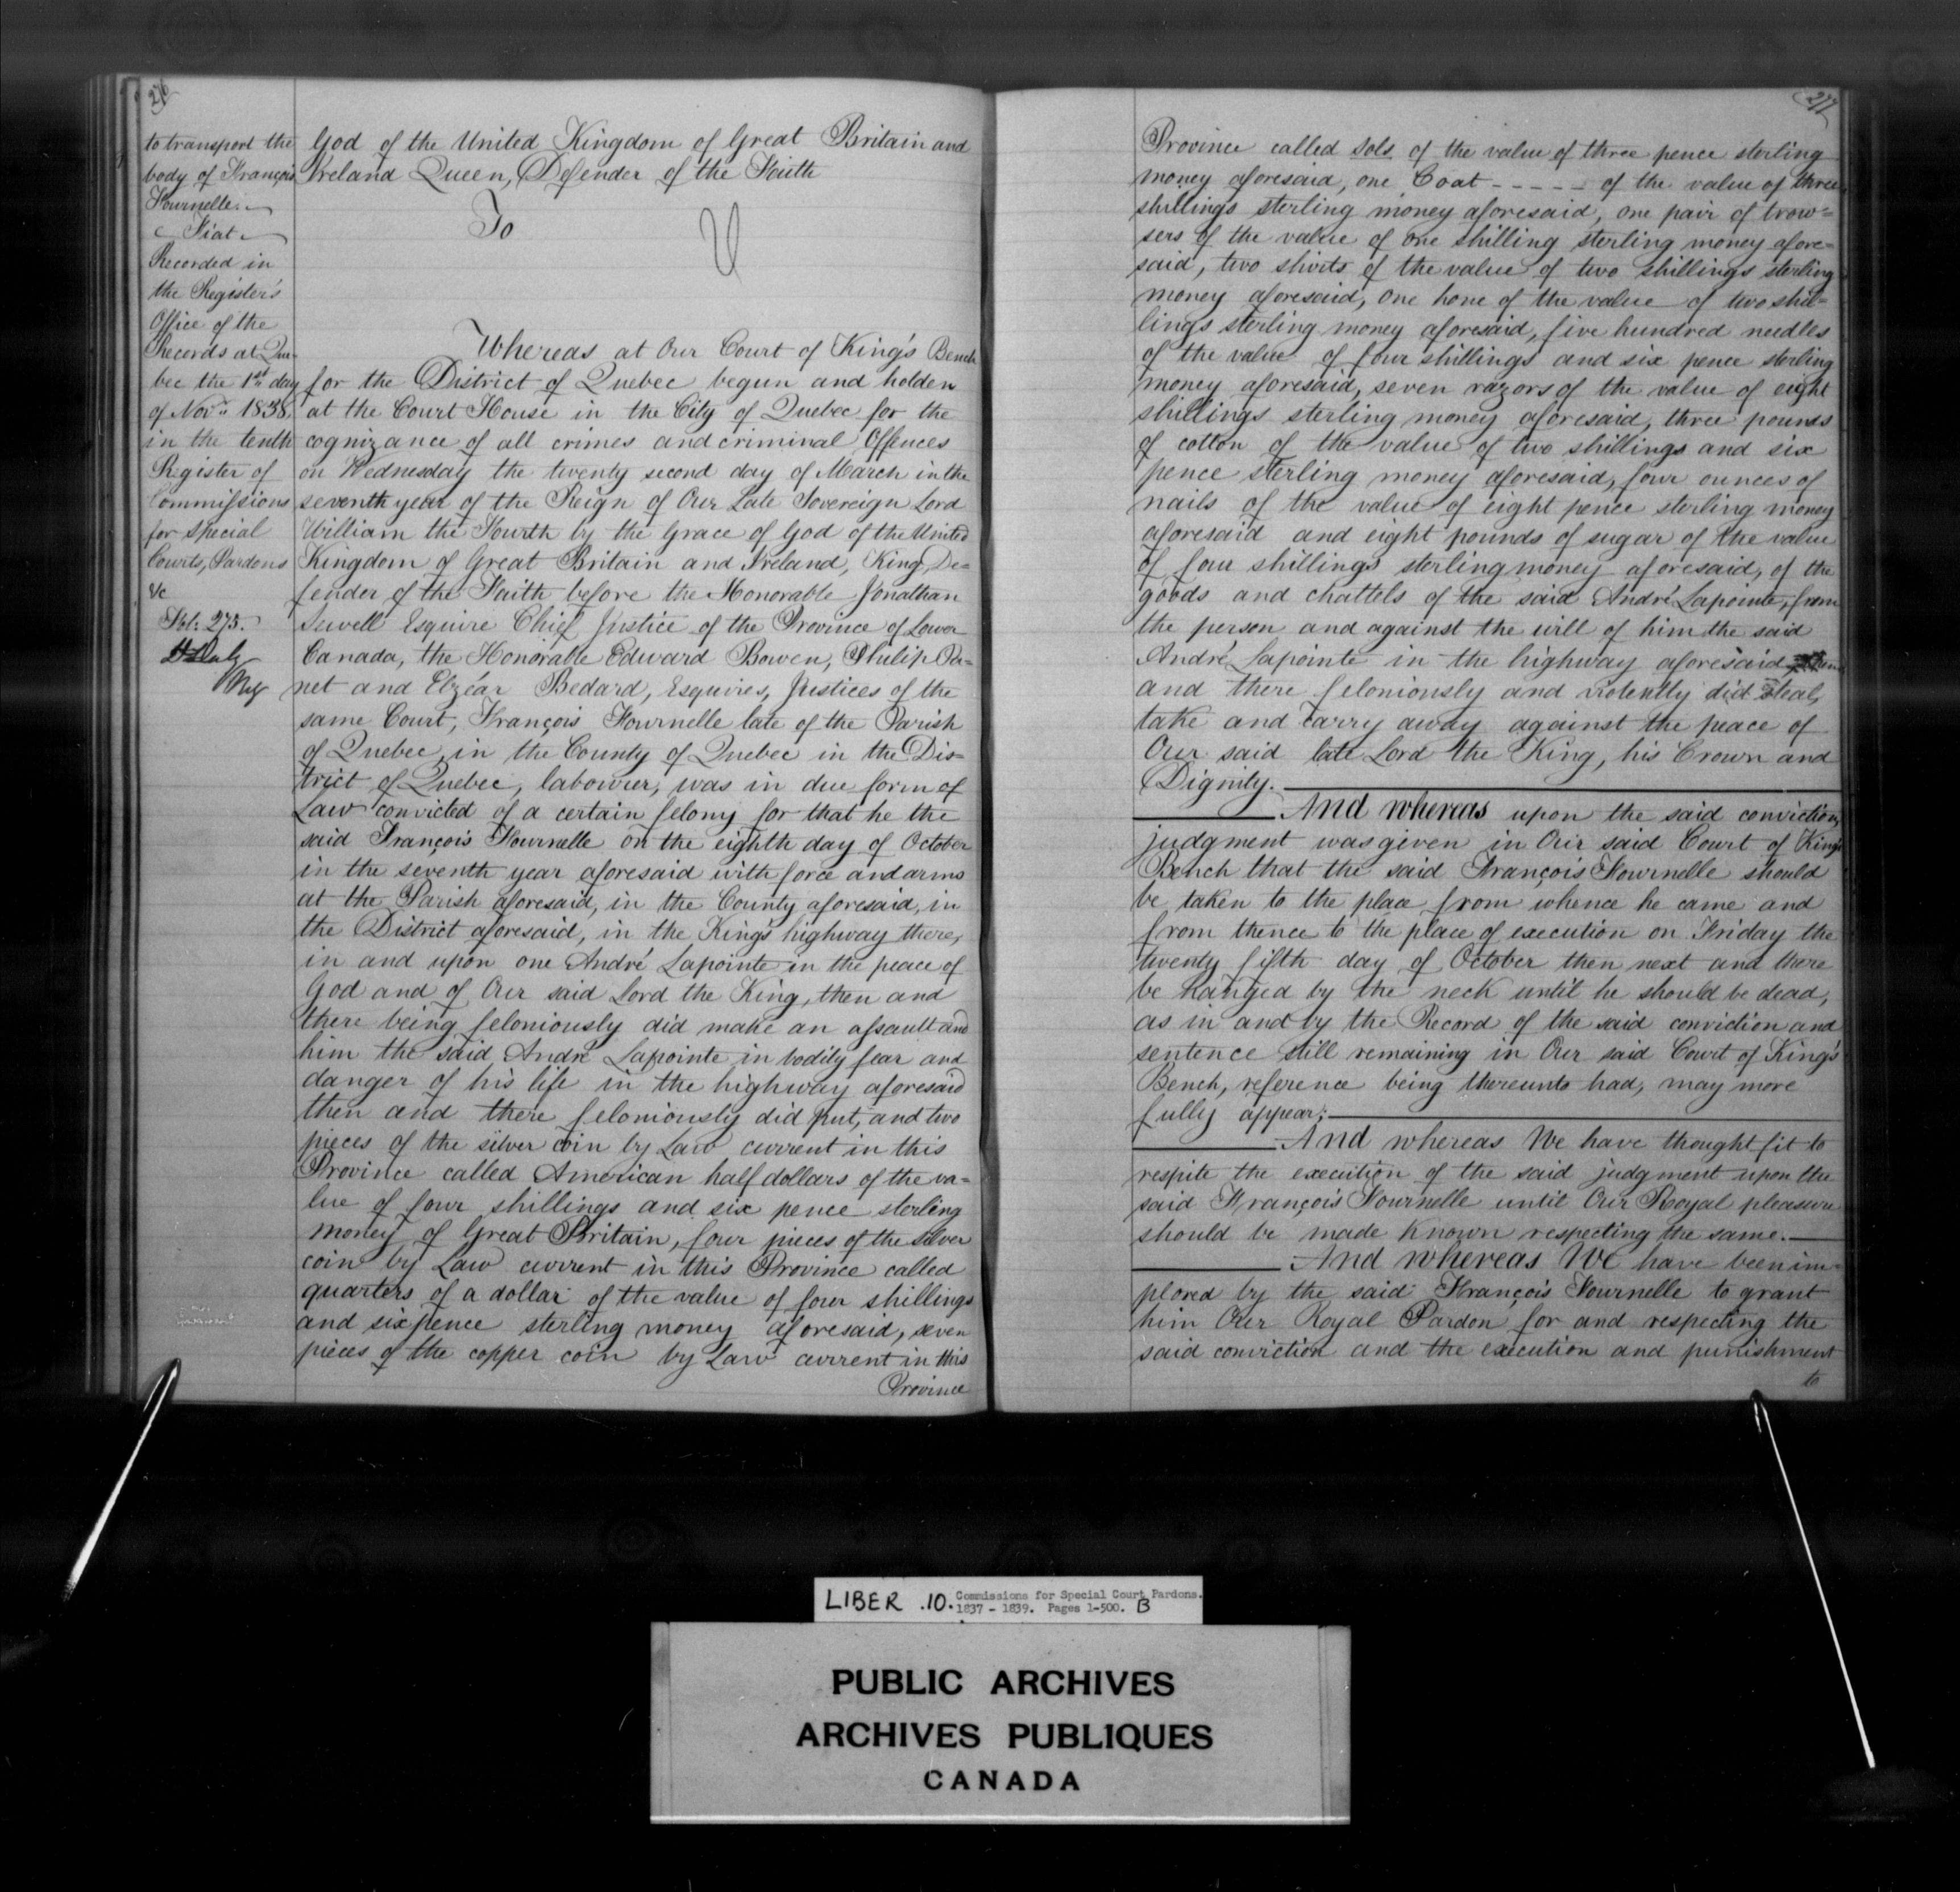 276
to transport the
body of François
Fournelle.
Fiat
Recorded in
the Register's
Office of the
Records at Que-
bec the 1st day
of Nov. 1838.
in the tenth
Register of
Commissions
for special
Courts, Pardons
&c
Fol: 275.
D Daly
Reg
God of the United Kingdom of Great Britain and
Ireland Queen, Defender of the Faith
To
Whereas at Our Court of King's Bench
for the District of Quebec begun and holden
at the Court House in the City of Quebec for the
cognizance of all crimes and criminal Offences
on Wednesday the twenty second day of March in the
seventh year of the Reign of Our Late Sovereign Lord
William the Fourth by the Grace of God of the United
Kingdom of Great Britain and Ireland, King, De=
fender of the Faith before the Honorable Jonathan
Sewell Esquire Chief Justice of the Province of Lower
Canada, the Honorable Edward Bowen, Philip Pa=
net and Elzéar Bedard, Esquires, Justices of the
same Court, François Fournelle late of the Parish
of Quebec, in the County of Quebec in the Dis=
trict of Quebec, labourer, was in due form of
Law convicted of a certain felony for that he the
said François Fournelle on the eighth day of October
in the seventh year aforesaid with force and arms
at the Parish aforesaid, in the County aforesaid, in
the District aforesaid, in the King's highway there,
in and upon one André Lapointe in the peace of
God and of Our said Lord the King, then and
there being feloniously did make an assault and
him the said André Lapointe in bodily fear and
danger of his life in the highway aforesaid
then and there feloniously did put, and two
pieces of the silver coin by Law current in this
Province called American half dollars of the va=
lue of four shillings and six pence sterling
money of Great Britain, four pieces of the silver
coin by Law current in this Province called
quarters of a dollar of the value of four shillings
and sixpence sterling money aforesaid, seven
pieces of the copper coin by Law current in this
Province
277
Province called sols of the value of three pence sterling
money aforesaid, one Coat ----- of the value of three
shillings sterling money aforesaid, one pair of trow=
sers of the value of one shilling sterling money afore=
said, two shirts of the value of two shillings sterling
money aforesaid, one hone of the value of two shil=
lings sterling money aforesaid, five hundred needles
of the value of four shillings and six pence sterling
money aforesaid, seven razors of the value of eight
shillings sterling money aforesaid, three pounds
of cotton of the value of two shillings and six
pence sterling money aforesaid, four ounces of
nails of the value of eight pence sterling money
aforesaid and eight pounds of sugar of the value
of four shillings sterling money aforesaid, of the
goods and chattels of the said André Lapointe, from
the person and against the will of him the said
André Lapointe in the highway aforesaid then
and there feloniously and violently did steal,
take and carry away against the peace of
Our said late Lord the King, his Crown and
Dignity.
And whereas upon the said conviction,
judgment was given in Our said Court of King's
Bench that the said François Fournelle should
be taken to the place from whence he came and
from thence to the place of execution on Friday the
twenty fifth day of October then next and there
be hanged by the neck until he should be dead,
as in and by the Record of the said conviction and
sentence still remaining in Our said Court of King's
Bench, reference being thereunto had, may more
fully appear;
And whereas We have thought fit to
respite the execution of the said judgment upon the
said François Fournelle until Our Royal pleasure
should be made known respecting the same.
And whereas We have been im=
plored by the said François Fournelle to grant
him Our Royal Pardon for and respecting the
said conviction and the execution and punishment
to
LIBER .10. Commissions for Special Court Pardons.
1837 - 1839. Pages 1-500. B
PUBLIC ARCHIVES
ARCHIVES PUBLIQUES
CANADA